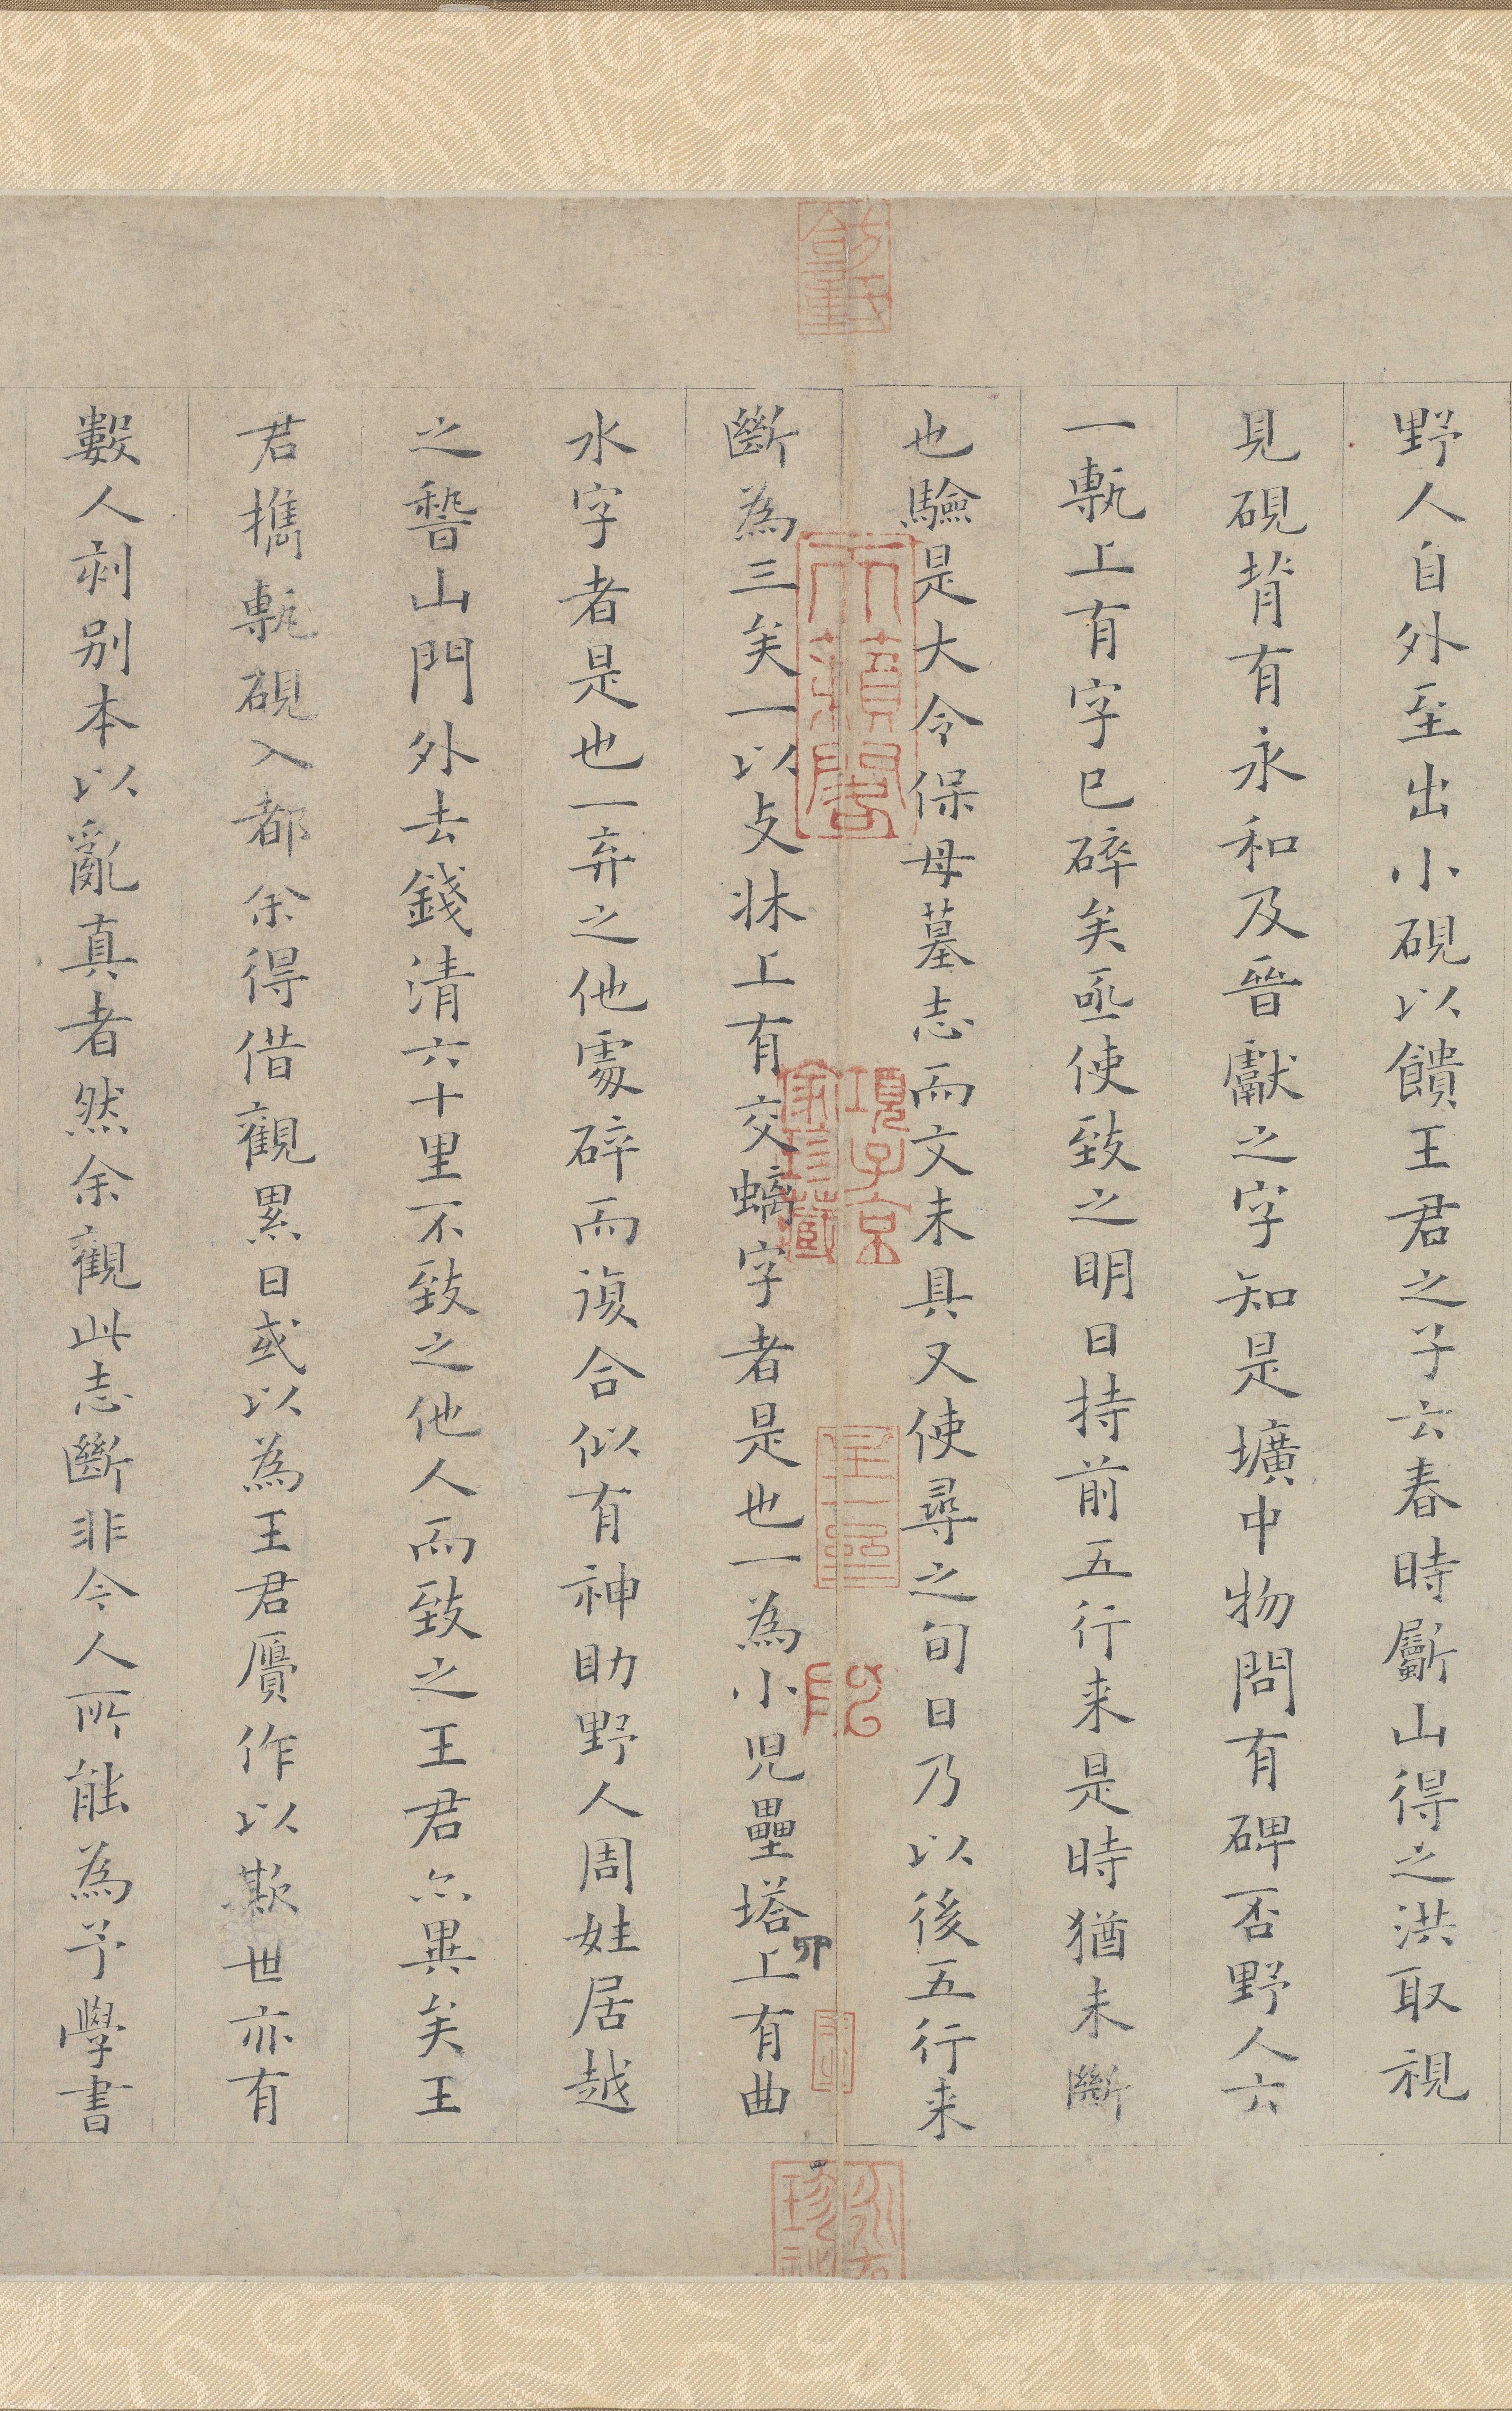 野人自外至出小硯以饋王君之子云春時斸山得之洪取視
見硯背有永和及晉獻之字知是壙中物問有碑否野人云
一甎上有字已碎矣亟使致之明日持前五行来是時猶未斷
也驗是大令保母墓志而文未具又使尋之旬日乃以後五行来
斷為三矣一以支牀上有交螭字者是也一為小児壘塔上有曲
水字者是也一弃之他處碎而復合似有神助野人周姓居越
之稽山門外去錢清六十里不致之他人而致之王君亦異矣王
君攜甎硯入都余得借觀累日或以為王君贗作以欺世亦有
數人刻别本以亂真者然余觀此志斷非今人所能為予學書
項子京
家珍藏